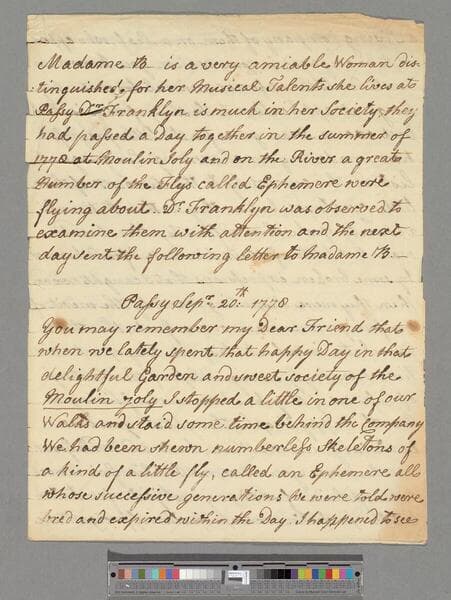 Madame B. is a very amiable Woman dis-
tinguished, for her Musical Talents she lives at
Passy Dr. Franklyn is much in her Society, they
had passed a Day together in the summer of
1778 at Moulin Joly and on the River a great
Number of the Flys called Ephemere were
flying about. Dr. Franklyn was observed to
examine them with attention and the next
day sent the following letter to Madame B.
Passy Sepr. 20th. 1778.
You may remember my Dear Friend that
when we lately spent that happy Day in that
delightful Garden and sweet society of the
Moulin Joly I stopped a little in one of our
Walks and staid some time behind the Company
We had been shewn numberless Skeletons of
a kind of a little fly, called an Ephemere all
whose successive generations we were told were
bred and expired within the Day. I happened to see